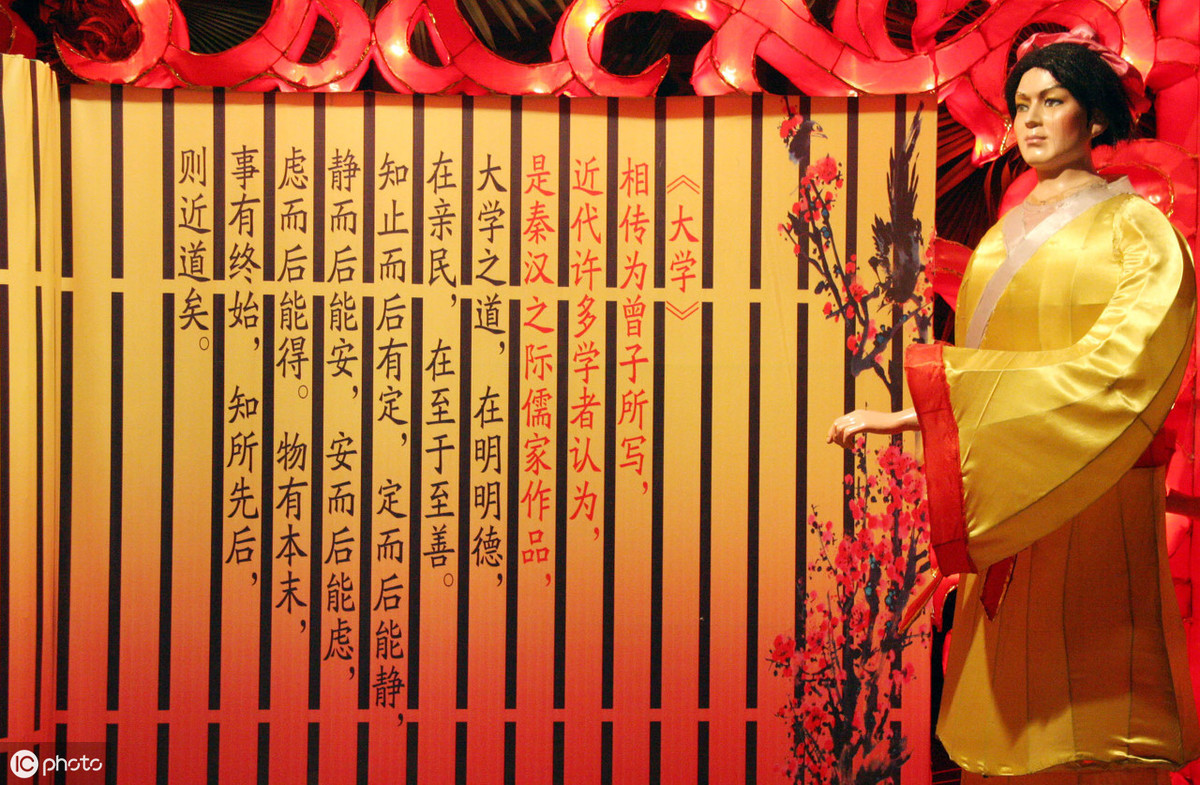 《大学》
相传为曾子所写，
近代许多学者认为，
是秦汉之际儒家作品，
大学之道，在明明德，
在亲民，在至于至善。
知止而后有定，定而后能静，
静而后能安，安而后能虑，
虑而后能得。物有本末，
事有终始，知所先后，
则近道矣。
IC photo